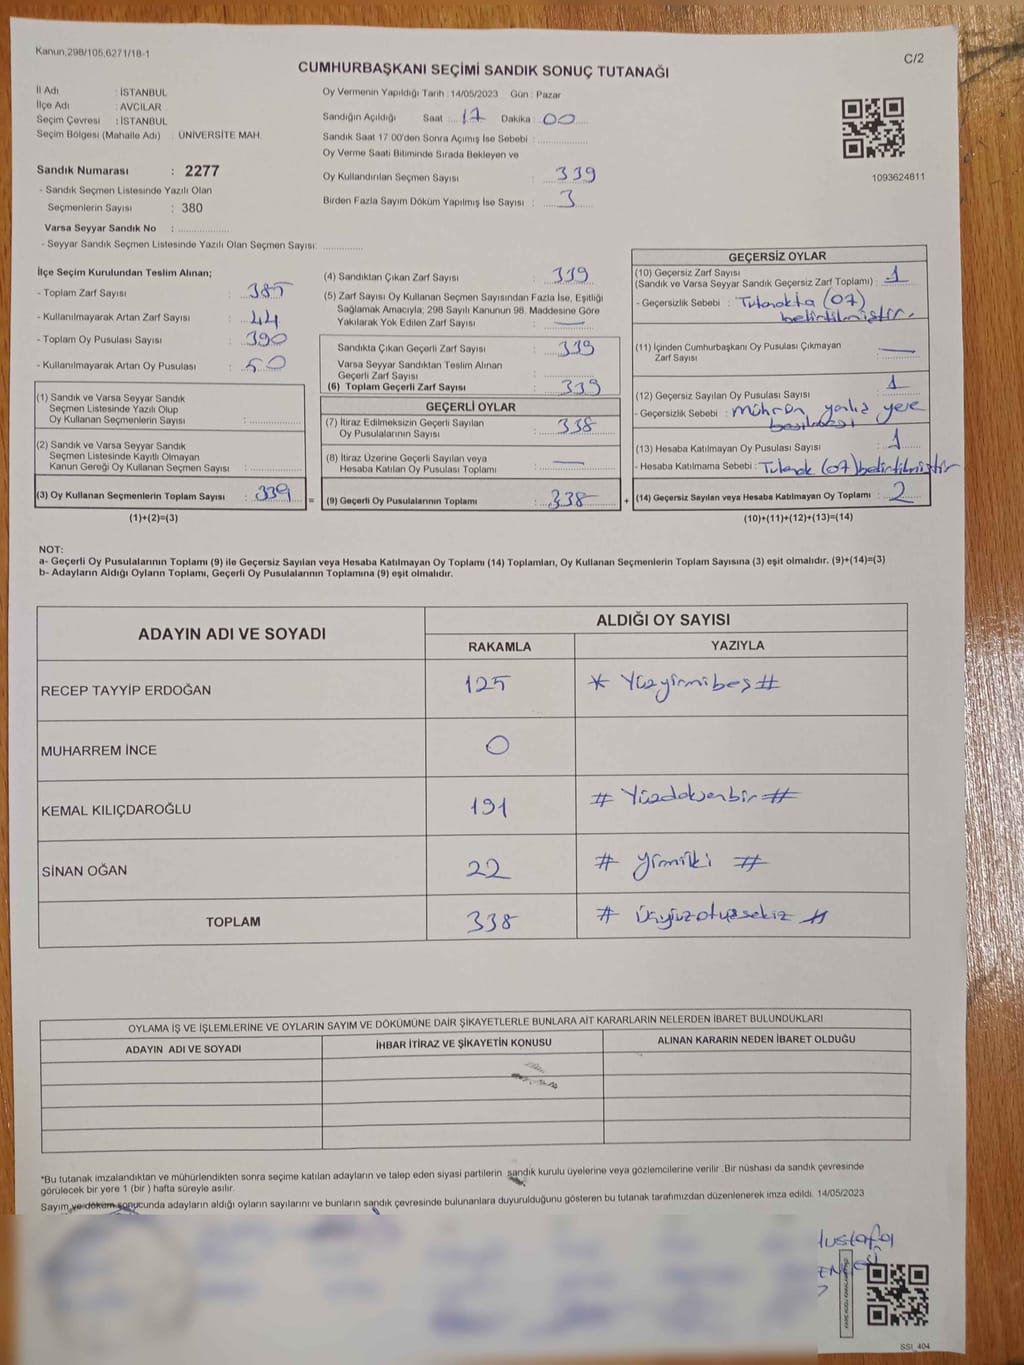 Kanun,298/105,6271/18-1
C/2
CUMHURBAŞKANI SEÇİMİ SANDIK SONUÇ TUTANAĞI
İl Adı : İSTANBUL
İlçe Adı : AVCILAR
Seçim Çevresi : İSTANBUL
Seçim Bölgesi (Mahalle Adı) : ÜNİVERSİTE MAH.
Sandık Numarası : 2277
- Sandık Seçmen Listesinde Yazılı Olan
Seçmenlerin Sayısı : 380
Varsa Seyyar Sandık No :
- Seyyar Sandık Seçmen Listesinde Yazılı Olan Seçmen Sayısı:
Oy Vermenin Yapıldığı Tarih : 14/05/2023 Gün : Pazar
Sandığın Açıldığı Saat : 17 Dakika : 00
Sandık Saat 17:00'den Sonra Açımış İse Sebebi :
Oy Verme Saati Bitiminde Sırada Bekleyen ve
Oy Kullandırılan Seçmen Sayısı : 339
Birden Fazla Sayım Döküm Yapılmış İse Sayısı : 3
1093624811
İlçe Seçim Kurulundan Teslim Alınan;
- Toplam Zarf Sayısı : 385
- Kullanılmayarak Artan Zarf Sayısı : 44
- Toplam Oy Pusulası Sayısı : 390
- Kullanılmayarak Artan Oy Pusulası : 50
(1) Sandık ve Varsa Seyyar Sandık
Seçmen Listesinde Yazılı Olup
Oy Kullanan Seçmenlerin Sayısı :
(2) Sandık ve Varsa Seyyar Sandık
Seçmen Listesinde Kayıtlı Olmayan
Kanun Gereği Oy Kullanan Seçmen Sayısı :
(3) Oy Kullanan Seçmenlerin Toplam Sayısı : 339
(1)+(2)=(3)
(4) Sandıktan Çıkan Zarf Sayısı : 339
(5) Zarf Sayısı Oy Kullanan Seçmen Sayısından Fazla İse, Eşitliği
Sağlamak Amacıyla, 298 Sayılı Kanunun 98. Maddesine Göre
Yakılarak Yok Edilen Zarf Sayısı : —
Sandıkta Çıkan Geçerli Zarf Sayısı : 339
Varsa Seyyar Sandıktan Teslim Alınan
Geçerli Zarf Sayısı :
(6) Toplam Geçerli Zarf Sayısı : 339
GEÇERLİ OYLAR
(7) İtiraz Edilmeksizin Geçerli Sayılan
Oy Pusulalarının Sayısı : 338
(8) İtiraz Üzerine Geçerli Sayılan veya
Hesaba Katılan Oy Pusulası Toplamı : —
= (9) Geçerli Oy Pusulalarının Toplamı : 338 +
GEÇERSİZ OYLAR
(10) Geçersiz Zarf Sayısı
(Sandık ve Varsa Seyyar Sandık Geçersiz Zarf Toplamı) : 1
- Geçersizlik Sebebi : Tutanakta (07)
belirtilmiştir.
(11) İçinden Cumhurbaşkanı Oy Pusulası Çıkmayan
Zarf Sayısı : —
(12) Geçersiz Sayılan Oy Pusulası Sayısı : 1
- Geçersizlik Sebebi : mührün yanlış yere
basılması
(13) Hesaba Katılmayan Oy Pusulası Sayısı : 1
- Hesaba Katılmama Sebebi : Tutanak (07) belirtilmiştir
(14) Geçersiz Sayılan veya Hesaba Katılmayan Oy Toplamı : 2
(10)+(11)+(12)+(13)=(14)
NOT:
a- Geçerli Oy Pusulalarının Toplamı (9) ile Geçersiz Sayılan veya Hesaba Katılmayan Oy Toplamı (14) Toplamları, Oy Kullanan Seçmenlerin Toplam Sayısına (3) eşit olmalıdır. (9)+(14)=(3)
b- Adayların Aldığı Oyların Toplamı, Geçerli Oy Pusulalarının Toplamına (9) eşit olmalıdır.
ADAYIN ADI VE SOYADI
ALDIĞI OY SAYISI
RAKAMLA YAZIYLA
RECEP TAYYİP ERDOĞAN 125 * Yüzyirmibeş #
MUHARREM İNCE 0
KEMAL KILIÇDAROĞLU 191 # Yüzdoksanbir #
SİNAN OĞAN 22 # yirmiiki #
TOPLAM 338 # üçyüzotuzsekiz #
OYLAMA İŞ VE İŞLEMLERİNE VE OYLARIN SAYIM VE DÖKÜMÜNE DAİR ŞİKAYETLERLE BUNLARA AİT KARARLARIN NELERDEN İBARET BULUNDUKLARI
ADAYIN ADI VE SOYADI İHBAR İTİRAZ VE ŞİKAYETİN KONUSU ALINAN KARARIN NEDEN İBARET OLDUĞU
*Bu tutanak imzalandıktan ve mühürlendikten sonra seçime katılan adayların ve talep eden siyasi partilerin sandık kurulu üyelerine veya gözlemcilerine verilir .Bir nüshası da sandık çevresinde
görülecek bir yere 1 (bir ) hafta süreyle asılır.
Sayım ve döküm sonucunda adayların aldığı oyların sayılarını ve bunların sandık çevresinde bulunanlara duyurulduğunu gösteren bu tutanak tarafımızdan düzenlenerek imza edildi. 14/05/2023
SSİ_404